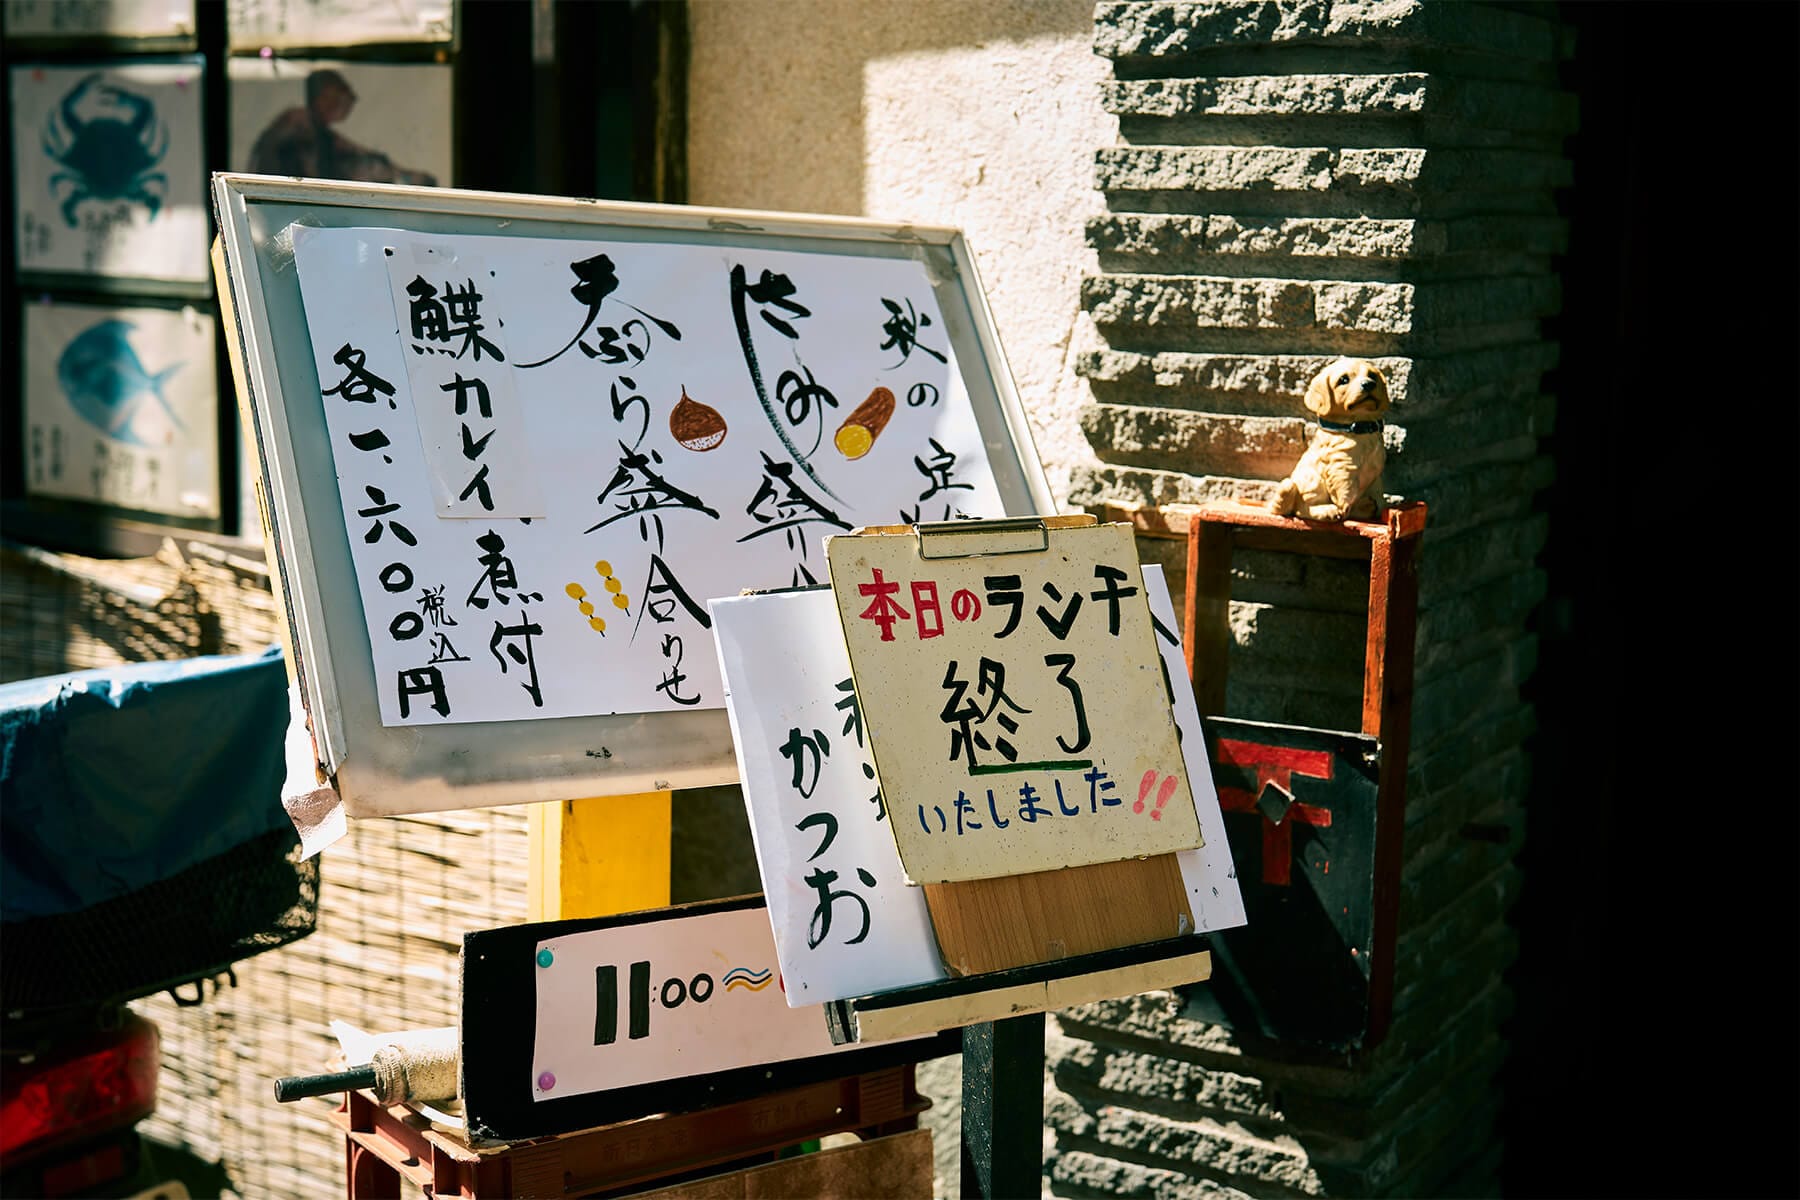 秋の定
さしみ盛り
天ぷら盛り合わせ
鰈カレイ煮付
各一、六〇〇円
税込
本日のランチ
終了
いたしました!!
かつお
11:00～